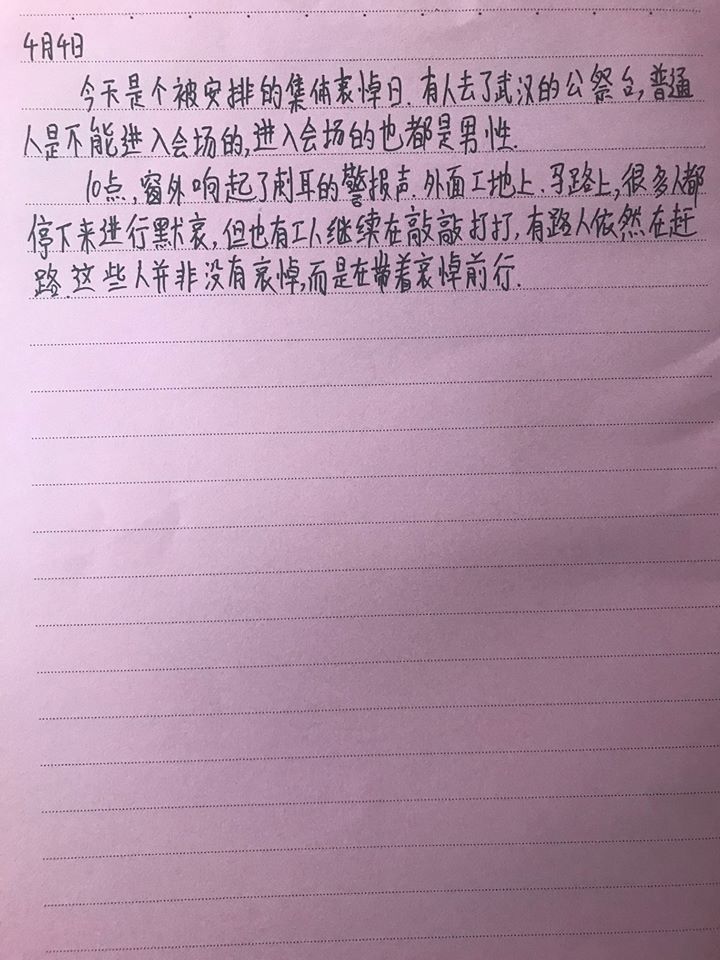 4月4日
今天是个被安排的集体哀悼日.有人去了武汉的公祭台,普通
人是不能进入会场的,进入会场的也都是男性.
10点,窗外响起了刺耳的警报声.外面工地上.马路上,很多人都
停下来进行默哀,但也有工人继续在敲敲打打,有路人依然在赶
路.这些人并非没有哀悼,而是在带着哀悼前行.